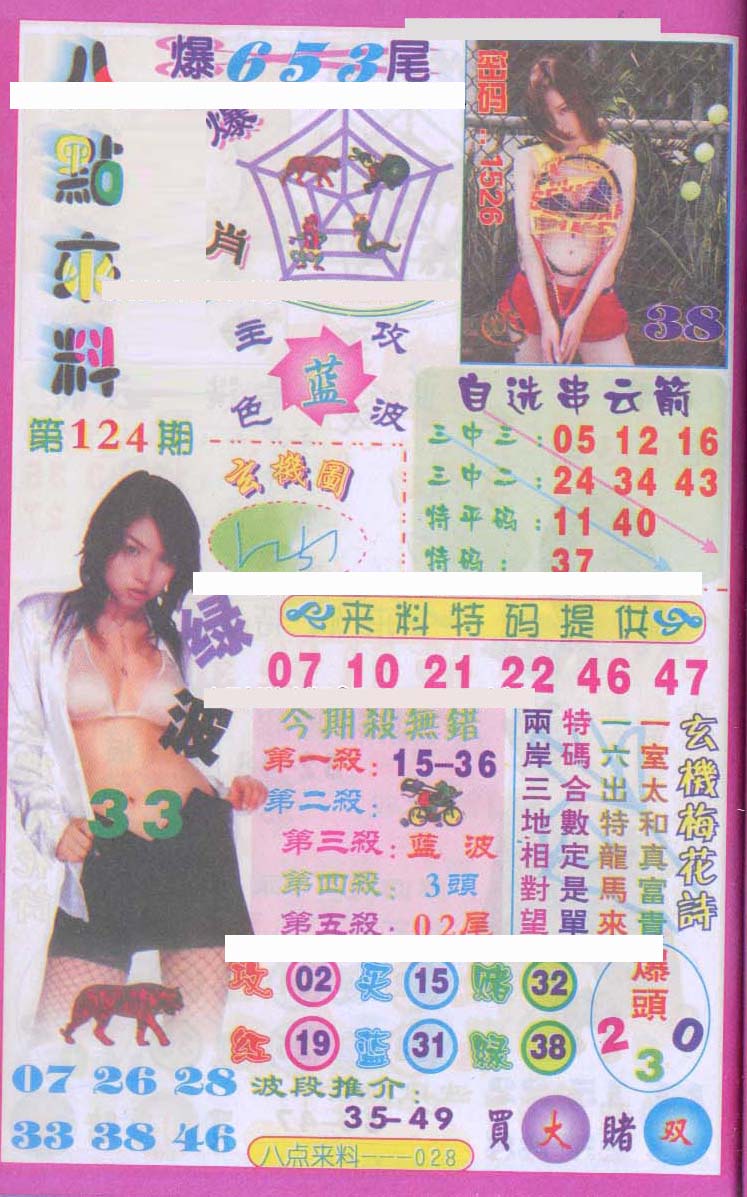 爆653尾
八點來料
爆肖
密码:1526
38
主攻
蓝
色波
自选串云箭
三中三:05 12 16
三中二:24 34 43
特平码:11 40
特码:37
第124期
玄機圖
绿波
33
来料特码提供
07 10 21 22 46 47
今期殺無錯
第一殺:15-36
第二殺:
第三殺:蓝波
第四殺:3頭
第五殺:02尾
玄機梅花詩
一室太和真富貴
一六出特龍馬來
特碼合數定是單
兩岸三地相對望
攻 02 买 15 赌 32
红 19 蓝 31 绿 38
爆頭
2 3 0
07 26 28
33 38 46
波段推介:
35-49
買大賭双
八点来料---028